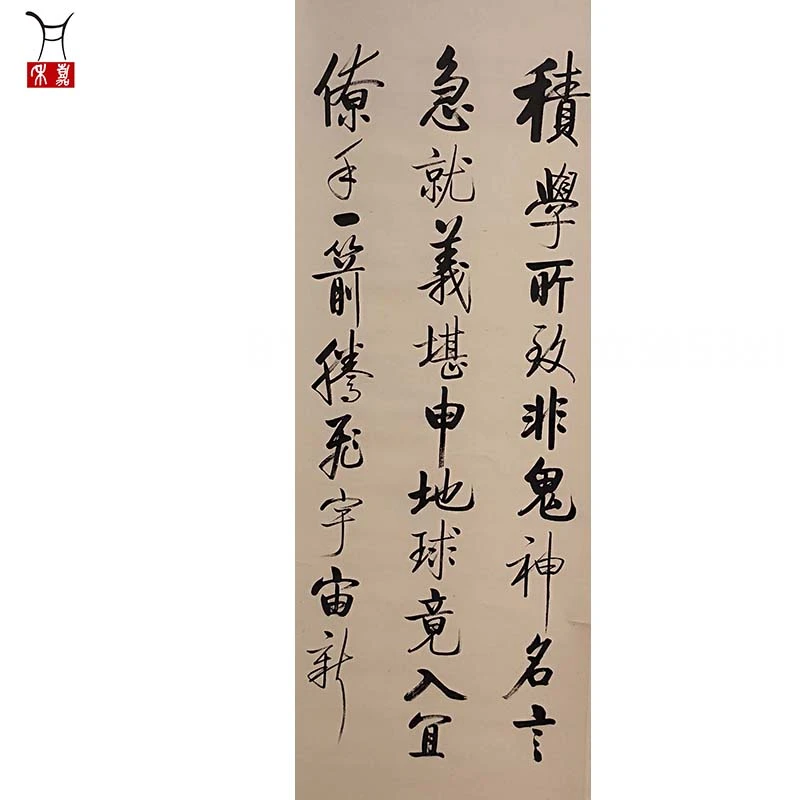 嘉
積學所致非鬼神名言
急就義堪申地球竟入宜
僚手一箭騰飛宇宙新